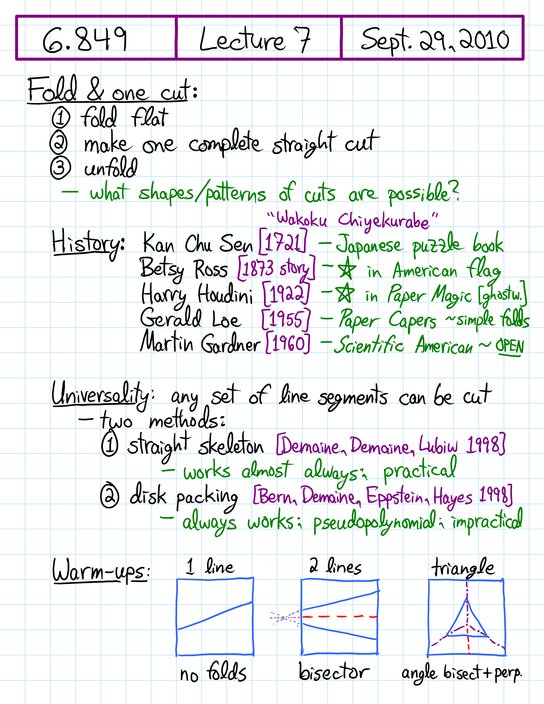 6.849 Lecture 7 Sept. 29, 2010
Fold & one cut:
① fold flat
② make one complete straight cut
③ unfold
— what shapes/patterns of cuts are possible?
"Wakoku Chiyekurabe"
History: Kan Chu Sen [1721] — Japanese puzzle book
Betsy Ross [1873 story] — ☆ in American flag
Harry Houdini [1922] — ☆ in Paper Magic [ghostw.]
Gerald Loe [1955] — Paper Capers ~simple folds
Martin Gardner [1960] — Scientific American ~ OPEN
Universality: any set of line segments can be cut
— two methods:
① straight skeleton [Demaine, Demaine, Lubiw 1998]
— works almost always; practical
② disk packing [Bern, Demaine, Eppstein, Hayes 1998]
— always works; pseudopolynomial; impractical
Warm-ups: 1 line 2 lines triangle
no folds bisector angle bisect + perp.